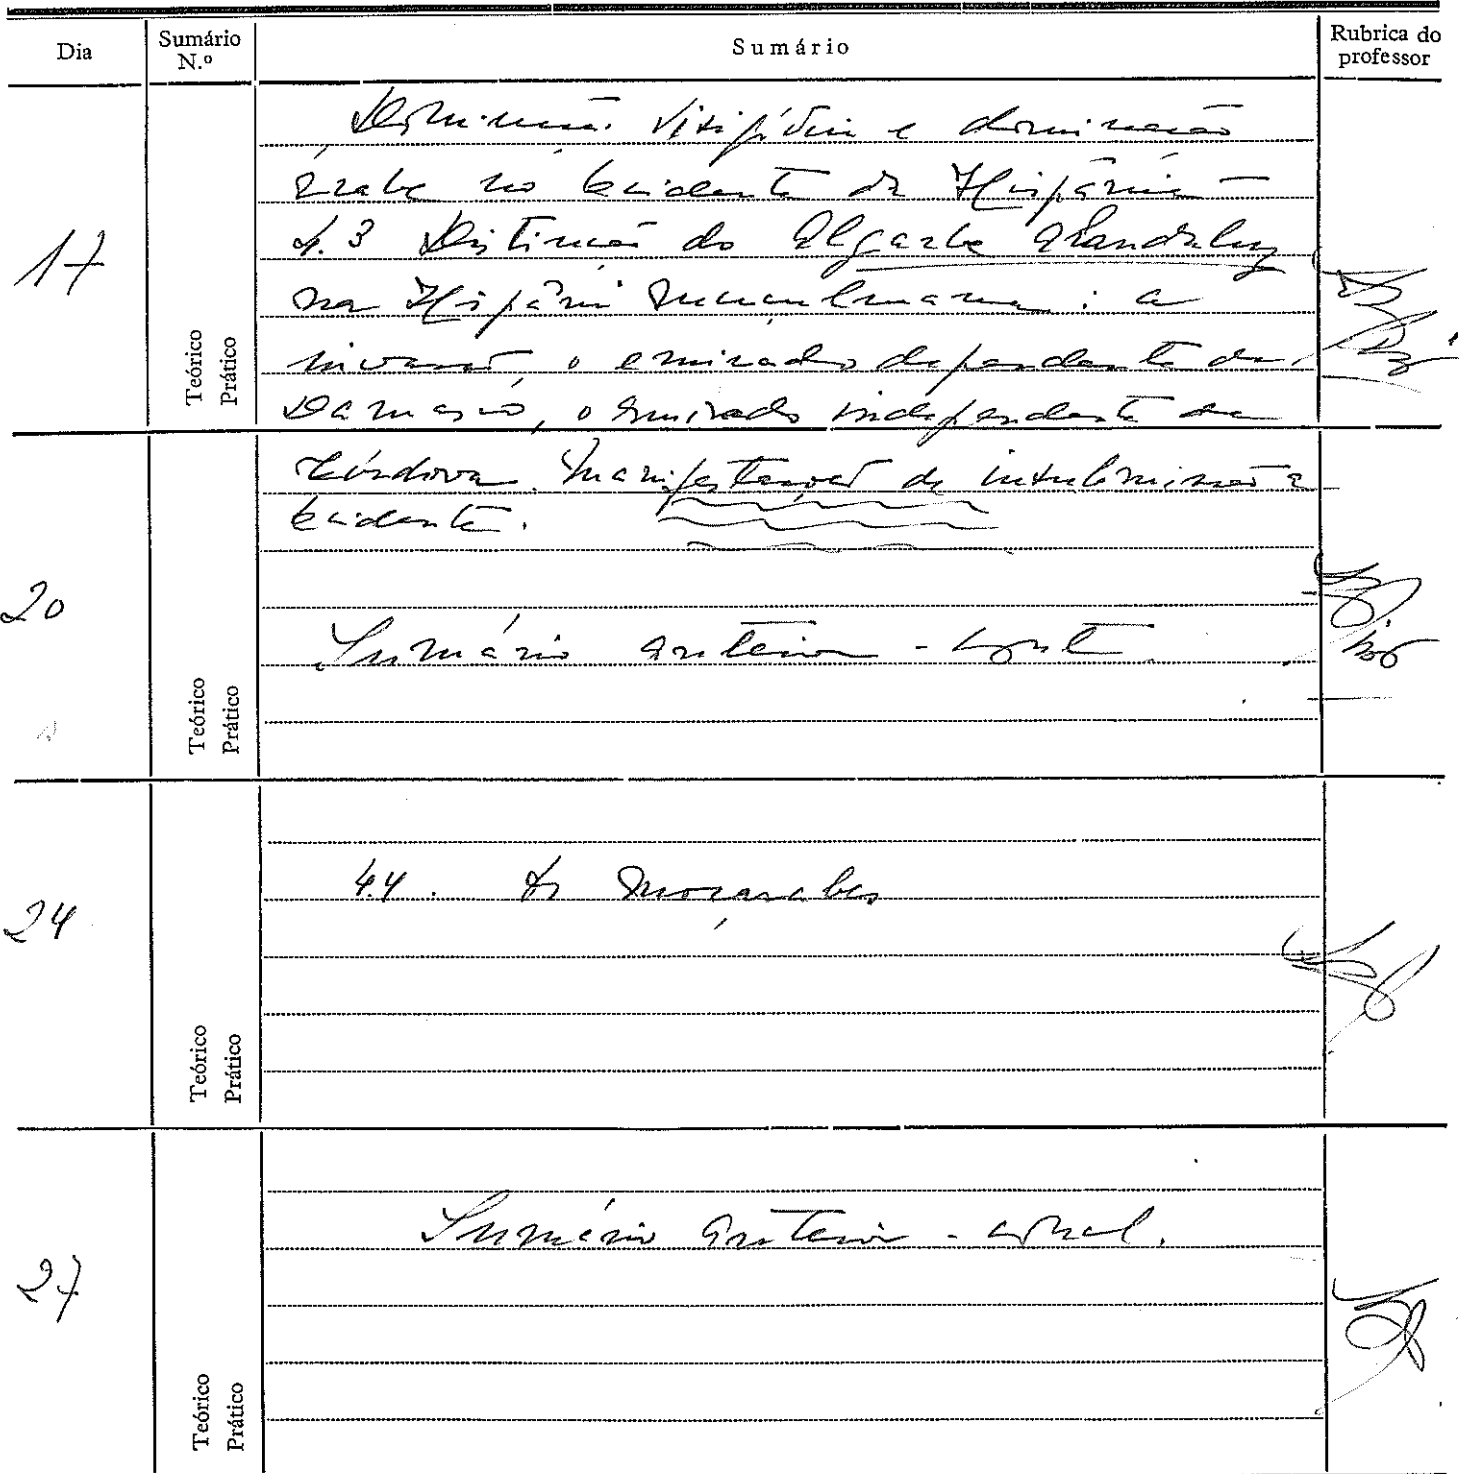 Dia
Sumário N.º
Sumário
Rubrica do professor
17
Teórico
Prático
Dominação Visigótica e dominação
árabe no Ocidente da Hispânia
4.3 Distinção do Algarbe Alandaluz
na Hispânia Muçulmana: a
invasão, o emirado dependente de
Damasco, o emirado independente de
20
Teórico
Prático
Córdova. Manifestações de insubmissão a
Ocidente.
Sumário anterior -
24
Teórico
Prático
4.4. Os Moçárabes
27
Teórico
Prático
Sumário anterior -